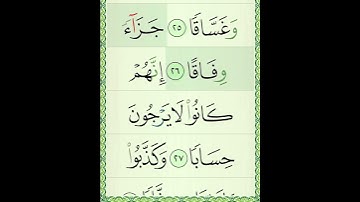 وَغَسَّاقًا ٢٥ جَزَآءً
وِفَاقًا ٢٦ إِنَّهُمْ
كَانُوا۟ لَا يَرْجُونَ
حِسَابًا ٢٧ وَكَذَّبُوا۟